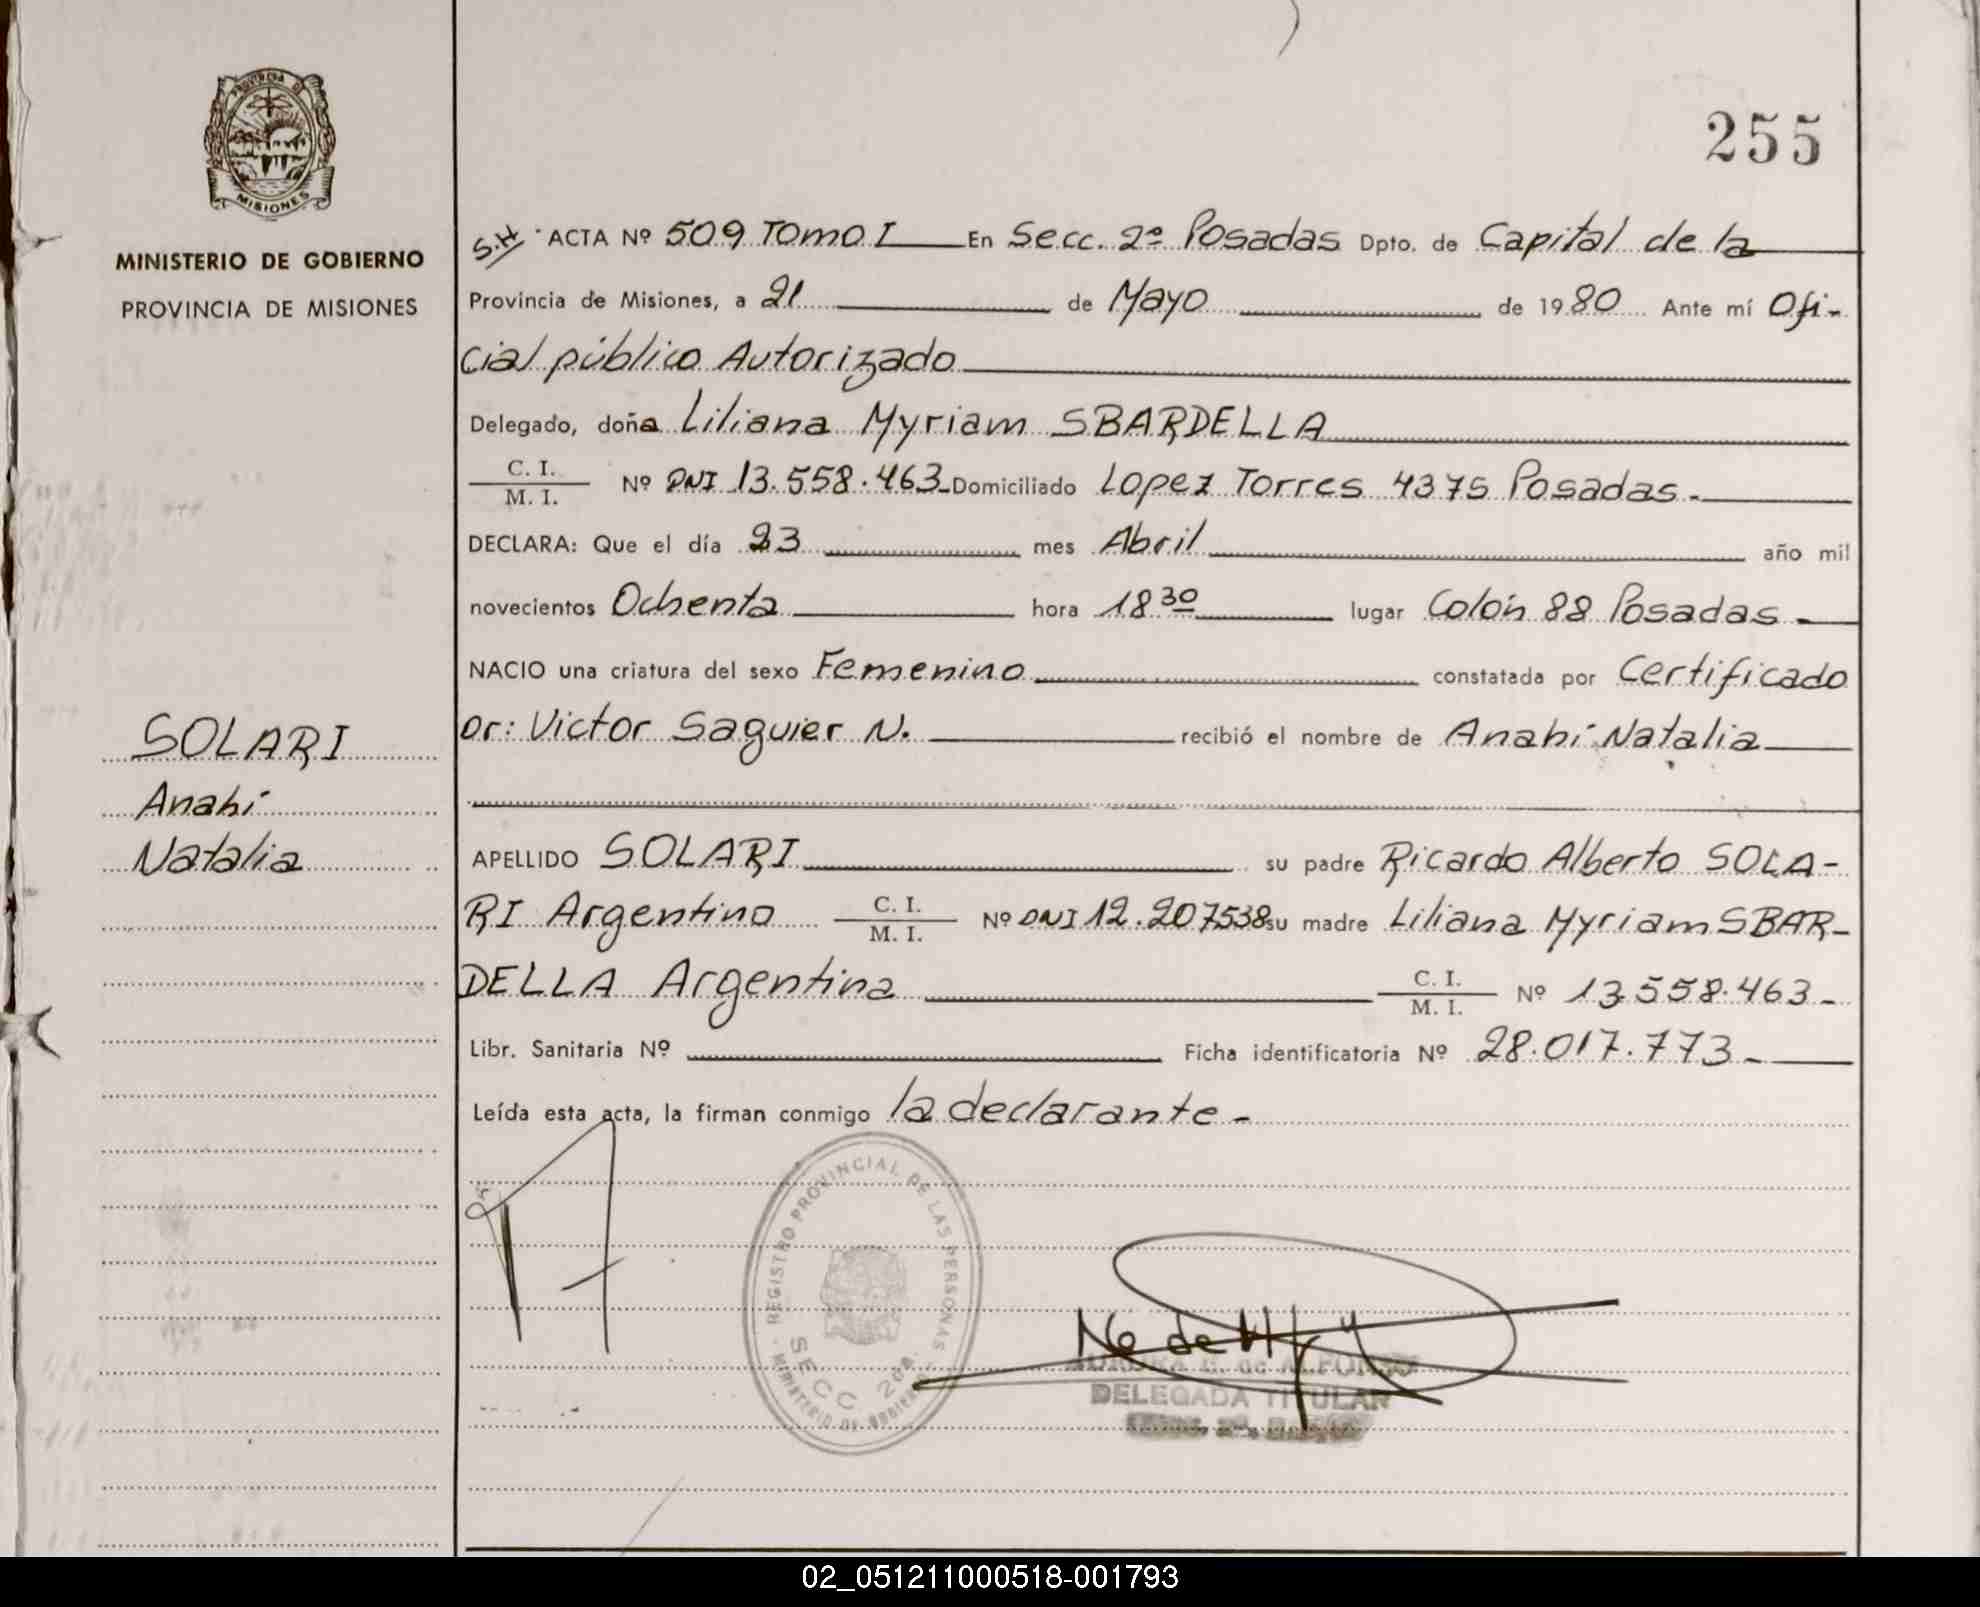 PROVINCIA DE
MISIONES
MINISTERIO DE GOBIERNO
PROVINCIA DE MISIONES
SOLARI
Anahí
Natalia
255
S.H ACTA Nº 509 TOMO I En Secc. 2º Posadas Dpto. de Capital de la
Provincia de Misiones, a 21 de Mayo de 1980 Ante mí Ofi-
cial público Autorizado
Delegado, doña Liliana Myriam SBARDELLA
C. I.
M. I. Nº DNI 13.558.463 Domiciliado Lopez Torres 4375 Posadas.
DECLARA: Que el día 23 mes Abril año mil
novecientos Ochenta hora 18 30 lugar Colón 88 Posadas
NACIO una criatura del sexo Femenino constatada por Certificado
Dr: Victor Saguier N. recibió el nombre de Anahí Natalia
APELLIDO SOLARI su padre Ricardo Alberto SOLA-
RI Argentino C. I. M. I. Nº DNI 12.207538 su madre Liliana Myriam SBAR-
DELLA Argentina C. I. M. I. Nº 13.558.463-
Libr. Sanitaria Nº Ficha identificatoria Nº 28.017.773-
Leída esta acta, la firman conmigo la declarante-
REGISTRO PROVINCIAL DE LAS PERSONAS
MINISTERIO DE GOBIERNO
SECC 2da.
de ALFONSO
DELEGADA TITULAR
02_051211000518-001793